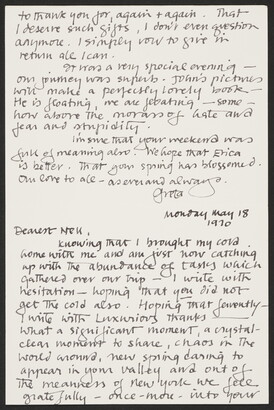 to thank you for, again & again. That
I deserve such gifts, I don't even question
anymore. I simply vow to give in
return all I can.
It was a very special evening —
our journey was superb. John's pictures
will make a perfectly lovely book —
He is floating, we are floating — some-
how above the morass of hate and
fear and stupidity.
I'm sure that your weekend was
full of meaning also. We hope that Erica
is better. That your spring has blossomed.
Our love to all — as ever and always,
Greta
Monday May 18
1970
Dearest Nell,
Knowing that I brought my cold
home with me and am just now catching
up with the abundance of tasks which
gathered over our trip — I write with
hesitation — hoping that you did not
get the cold also. Hoping that fervently —
I write with Luxurious thanks —
What a significant moment, a crystal-
clear moment to share, chaos in the
world around, new spring daring to
appear in your valley and out of
the meanness of new york we fell
gratefully — once-more — into your